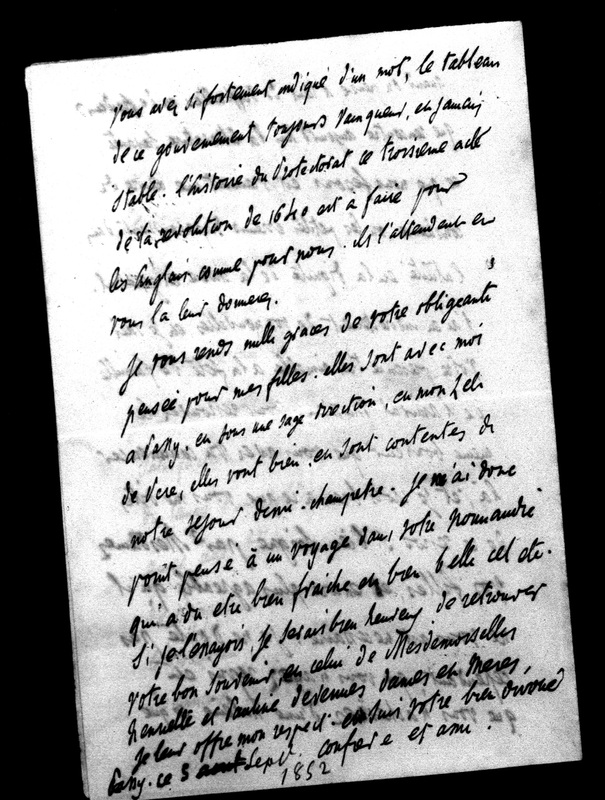 vous avez si fortement indiqué d'un mot, le tableau
de ce gouvernement toujours vainqueur, et jamais
stable. l'histoire du Protectorat ce troisieme acte
de la revolution de 1640 est à faire pour
les Anglais comme pour nous. ils l'attendent et
vous la leur donnerez.
Je vous rends mille graces de votre obligeante
pensée pour mes filles. elles sont avec moi
a Passy. et sous une sage direction, et mon
de Pere, elles vont bien. et sont contentes de
notre sejour demi-champetre. Je n'ai donc
point pensé à un voyage dans votre Normandie
qui a du etre bien fraiche et bien belle cet été.
Si je l'essayois, je serais bien heureux de retrouver
votre bon souvenir, et celui de Mesdemoiselles
henriette et Pauline devenues dames et Meres,
je leur offre mon respect. et suis votre bien dévoué
Passy. ce 5 Sept. confrere et ami.
1852